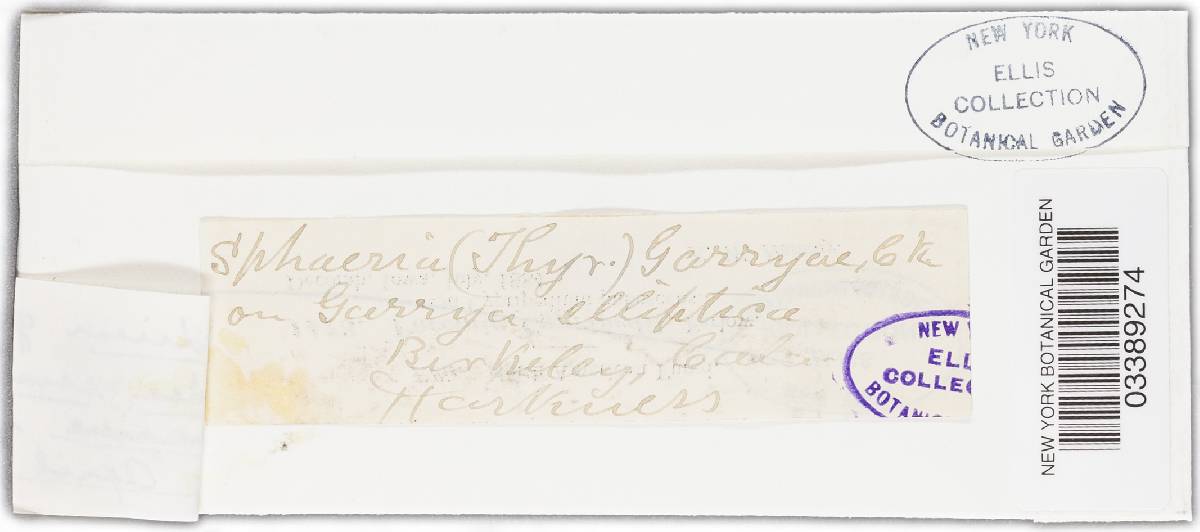 NEW YORK
ELLIS
COLLECTION
BOTANICAL GARDEN
Sphaeria (Thyr.) Garryae, Ck
on Garrya elliptica
Berkeley,
Harkness
NEW Y
ELL
COLLEC
BOTANI
NEW YORK BOTANICAL GARDEN
03389274